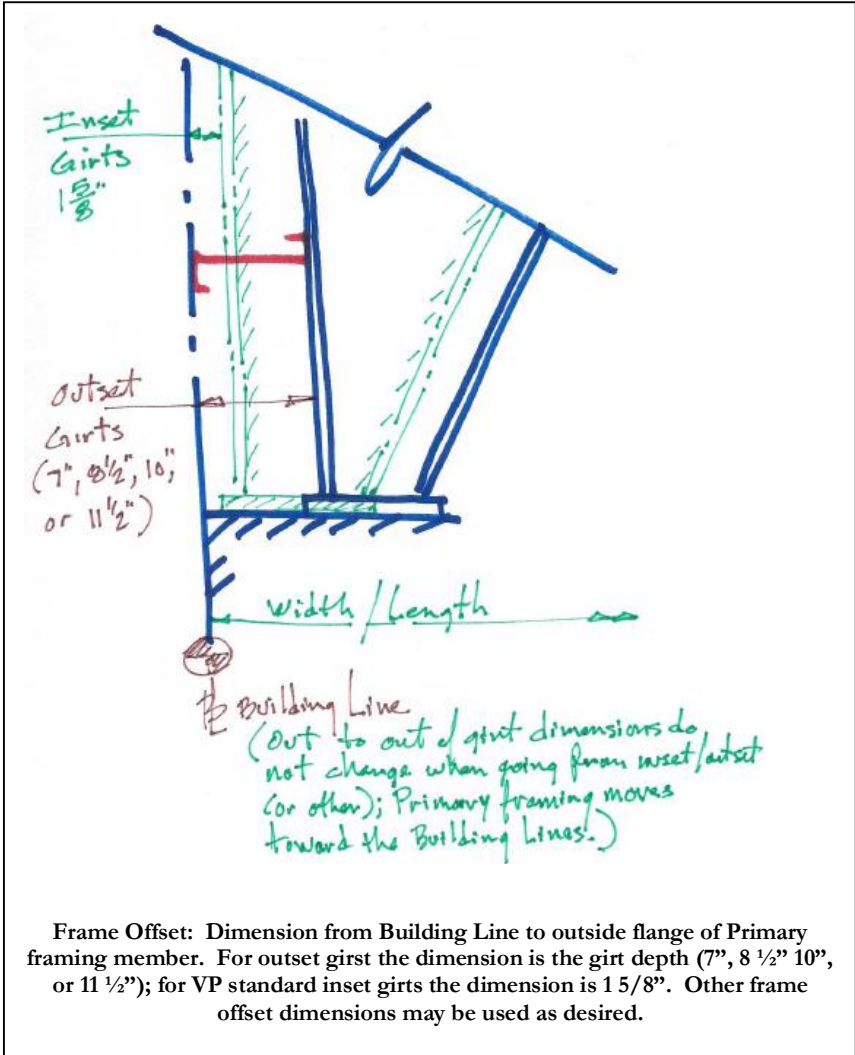 Inset
Girts
1 5/8"
Outset
Girts
(7", 8 1/2", 10",
or 11 1/2")
Width / Length
Building Line
(Out to out of girt dimensions do
not change when going from inset/outset
(or other); Primary framing moves
toward the Building Lines.)
Frame Offset: Dimension from Building Line to outside flange of Primary
framing member. For outset girst the dimension is the girt depth (7”, 8 ½” 10”,
or 11 ½”); for VP standard inset girts the dimension is 1 5/8”. Other frame
offset dimensions may be used as desired.